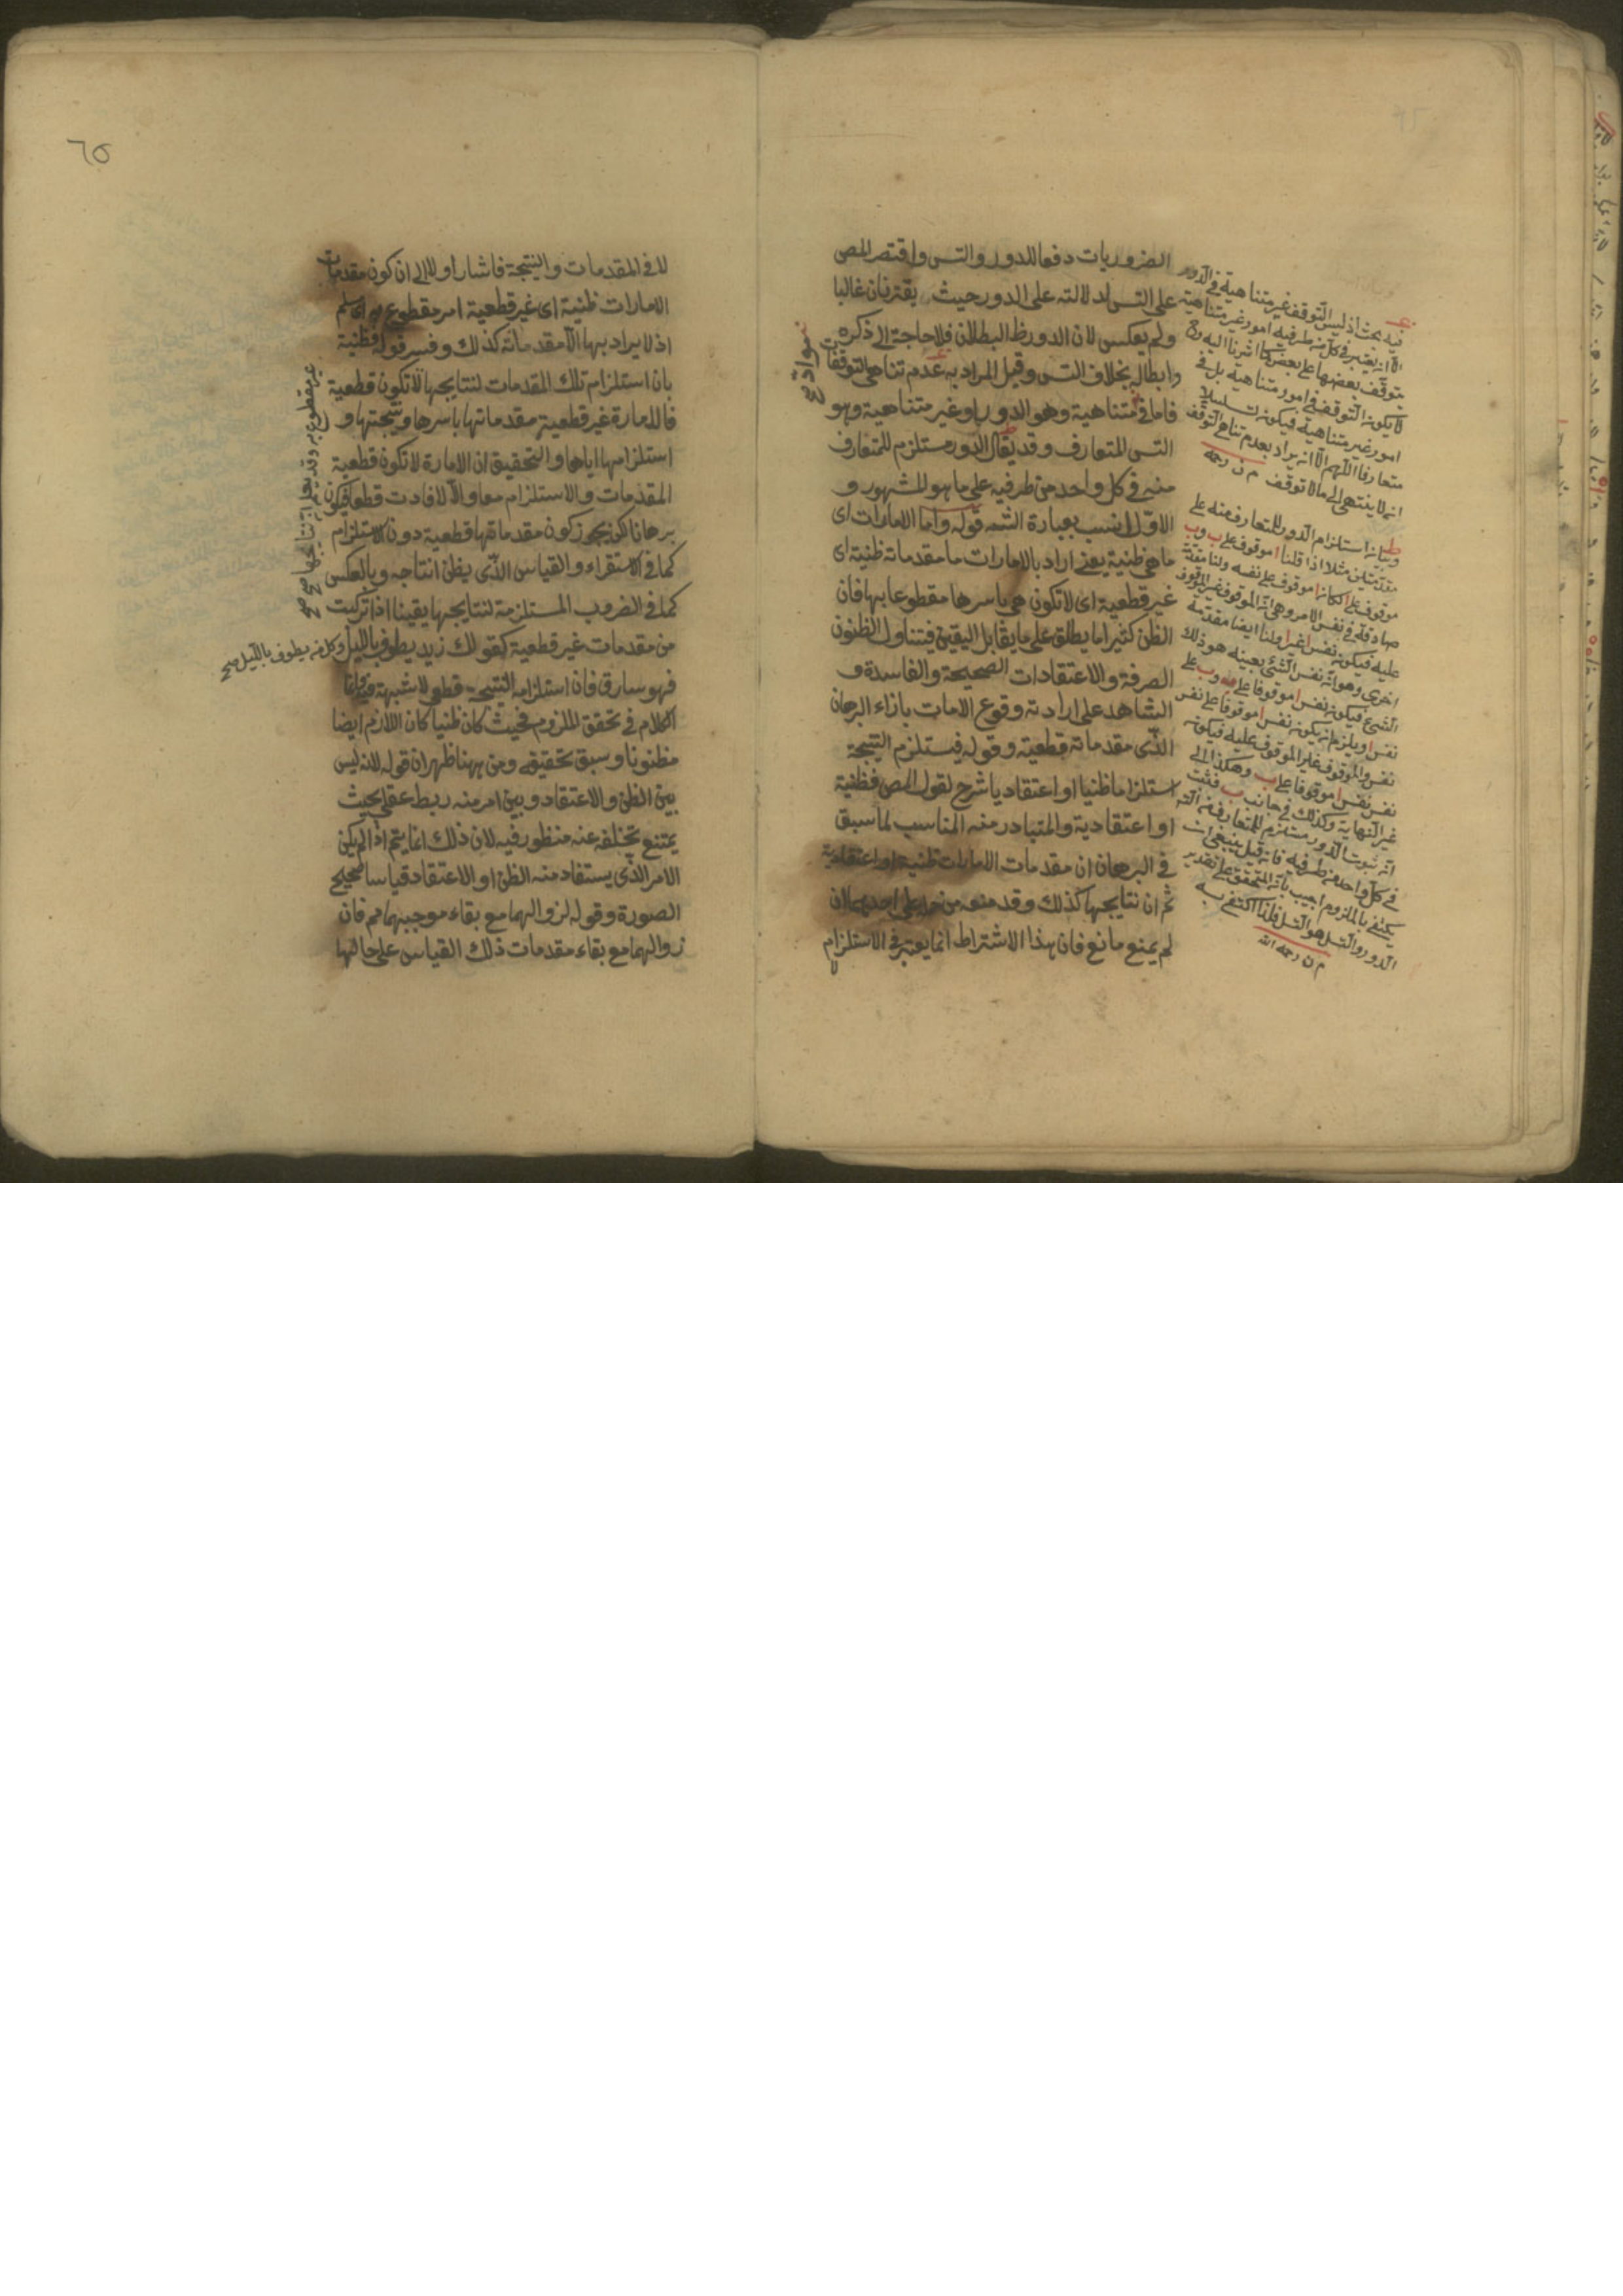 الضروريات دفعا للدور والتس واقتصر المص
على التس لدلالته على الدور حيث يقترنان غالبا
ولم يعكس لان الدور ظ البطلان فلا حاجة الى ذكره
وابطاله بخلاف التس وقيل المراد به عدم تناهى التوقفات
فاما فى متناهية وهو الدور او غير متناهية وهو
التس المتعارف وقد يقال الدور مستلزم للمتعارف
منه فى كل واحد من طرفيه على ما هو المشهور و
الاول انسب بعبارة الشه قوله واما الامارات اى
ما هى ظنية يعنى اراد بالامارات ما مقدماته ظنية اى
غير قطعية اى لا تكون هى باسرها مقطوعا بها فان
الظن كثيرا ما يطلق على ما يقابل اليقين فيتناول الظنون
الصرفة والاعتقادات الصحيحة والفاسدة و
الشاهد على ارادته وقوع الامات بازاء البرهان
الذى مقدماته قطعية وقوله فيستلزم النتيجة
استلزاما ظنيا او اعتقاديا شرح لقول المص فظنية
او اعتقادية والمتبادر منه المناسب لما سبق
فى البرهان ان مقدمات الامارات ظنية او اعتقادية
ثم ان نتايجها كذلك وقد منعه من حمله على احديهما ان
لم يمنع مانع فان هذا الاشتراط انما يعتبر فى الاستلزام
لا
فيه بحث اذ ليس التوقف غير متناهية فى الدور
الا انه يعتبر فى كل من طرفيه امور غير متناهية
يتوقف بعضها على بعض كما اشرنا اليه
لا يكون التوقف فى امور متناهية بل فى
امور غير متناهية فيكون تسلسلا
متعارفا اللهم الا ان يراد بعدم تناهى التوقف
انه لا ينتهى الى ما لا توقف م ن رحمه
وبيان استلزام الدور للمتعارف منه على
مقدمتان مثلا اذا قلنا ا موقوف على ب وب
موقوف على ا كان ا موقوف على نفسه ولنا مقدمة
صادقة فى نفس الامر وهى ان الموقوف غير الموقوف
عليه فيكون نفس ا غير ا ولنا ايضا مقدمة
اخرى وهو ان نفس الشئ بعينه هو ذلك
الشئ فيكون نفس ا موقوفا على ب وب على
نفس ا ويلزم ان يكون نفس ا موقوفا على نفس
نفس ا والموقوف غير الموقوف عليه فيكون
نفس نفس ا موقوفا على ب وهكذا الى
غير النهاية وكذلك فى جانب ب فثبت
ان ثبوت الدور مستلزم للمتعارف من التس
فى كل واحد من طرفيه فان قيل ينبغى ان
يكتفى بالملزوم اجيب بان المتحقق على تقدير
الدور والتسل هو التسل فلذا اكتفى به
م ن رحمه الله
٦٥
للا فى المقدمات والنتيجة فاشار اولا الى ان كون مقدمات
الامارات ظنية اى غير قطعية امر مقطوع به اى مسلم
اذ لا يراد بها الا مقدماته كذلك وفسر قوله فظنية
بان استلزام تلك المقدمات لنتايجها لا تكون قطعية
فالامارة غير قطعية مقدماتها باسرها ونتيجتها و
استلزامها اياها والتحقيق ان الامارة لا تكون قطعية
المقدمات والاستلزام معا والا لافادت قطعا فيكون
برهانا لكن يجوز كون مقدماتها قطعية دون الاستلزام
كما فى الاستقراء والقياس الذى يظن انتاجه وبالعكس
كما فى الضروب المستلزمة لنتايجها يقينا اذا تركبت
من مقدمات غير قطعية كقولك زيد يطوف بالليل
وكل من يطوف بالليل صح
فهو سارق فان استلزامه النتيجة قطعى لا شبهة فيه وانما
الكلام فى تحقق الملزوم فحيث كان ظنيا كان اللازم ايضا
مظنونا وسبق تحقيقه ومن ههنا ظهر ان قوله لانه ليس
بين الظن والاعتقاد وبين امر منه ربط عقلى بحيث
يمتنع تخلفه عنه منظور فيه لان ذلك انما يتم اذا لم يكن
الامر الذى يستفاد منه الظن او الاعتقاد قياسا صحيح
الصورة وقوله لزوالهما مع بقاء موجبهما مم فان
زوالهما مع بقاء مقدمات ذلك القياس على حالتها